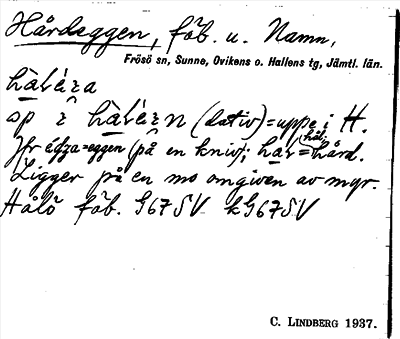 Hårdeggen, fäb. u. Namn,
Frösö sn, Sunne, Ovikens o. Hallens tg, Jämtl. län.
hàlę́ɀa
sp i hàlę́ɀn (dativ) = uppe i H.
Jfr ę́gɀa = eggen (på en kniv); hal = hård.
Ligger på en mo omgiven av myr.
Hålö fäb. G67SV kG67SV
C. LINDBERG 1937.